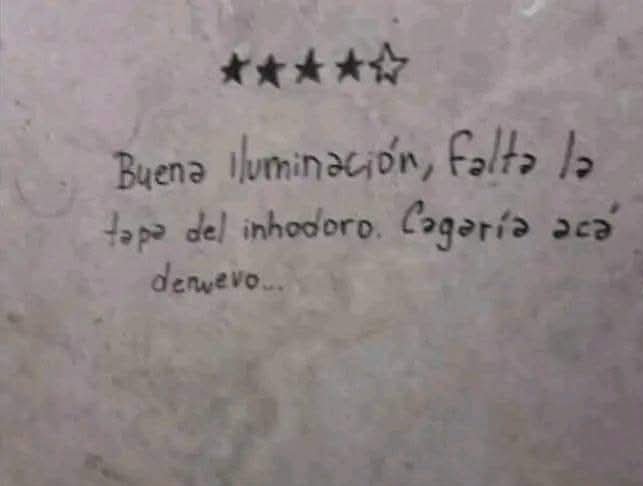 ★★★★☆
Buena iluminación, falta la
tapa del inhodoro. Cagaría acá
denuevo...